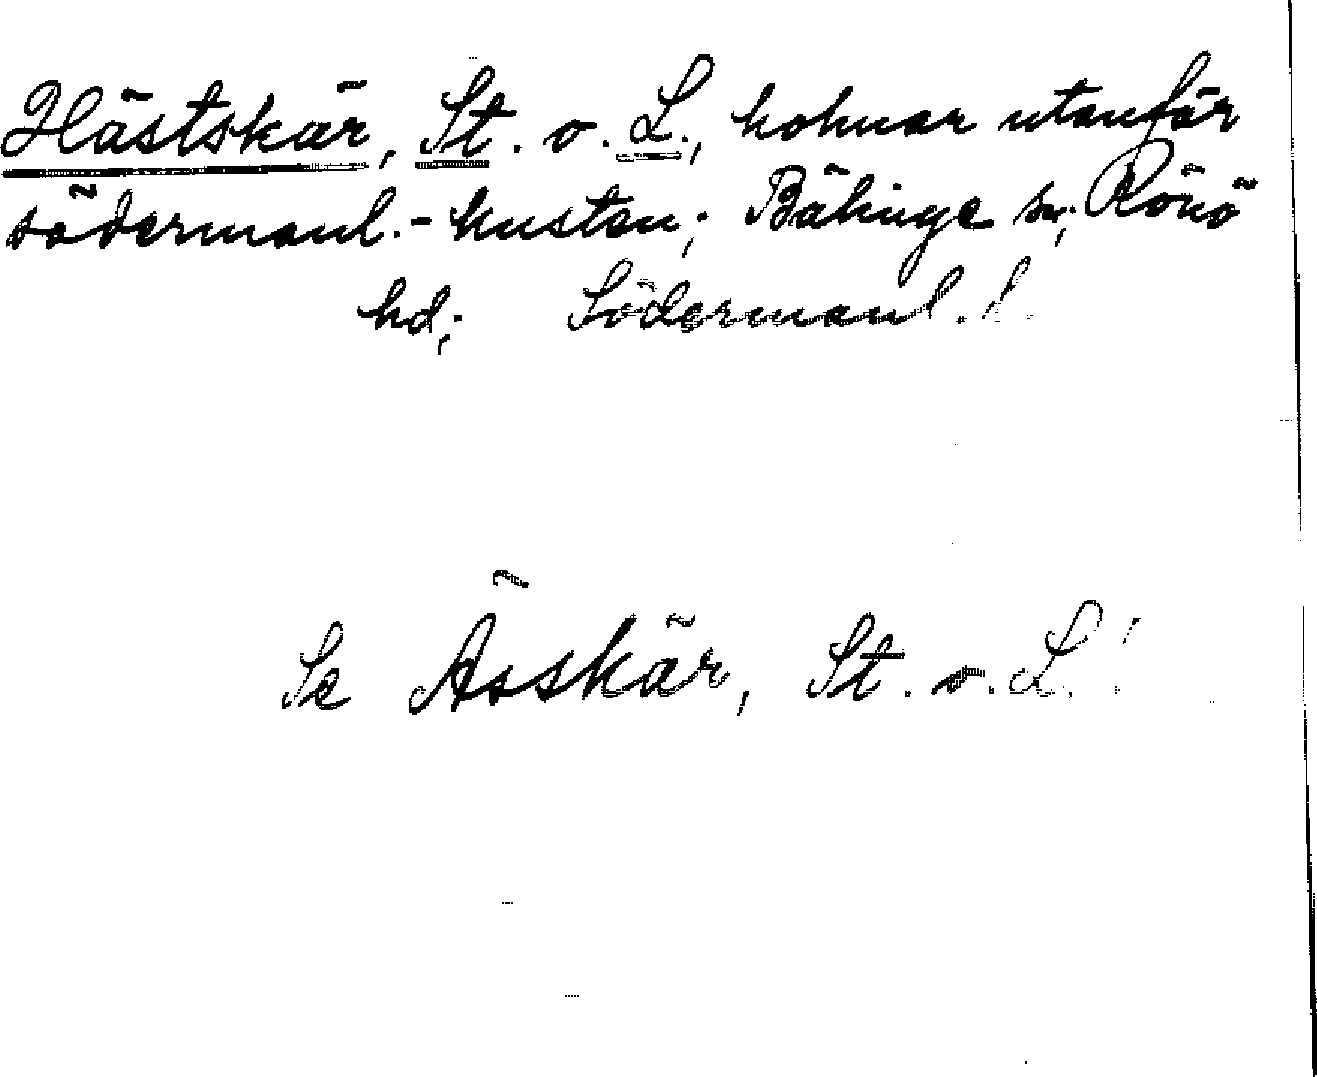 Hästskär, St. o. L., holmar utanför
södermanl.-kusten; Bälinge sn; Rönö
hd; Södermanl. l.
Se Ässkär, St. o. L.!